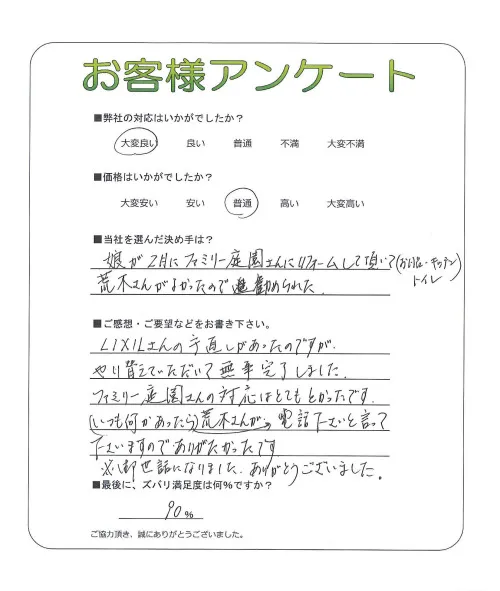 お客様アンケート
■弊社の対応はいかがでしたか？
大変良い 良い 普通 不満 大変不満
■価格はいかがでしたか？
大変安い 安い 普通 高い 大変高い
■当社を選んだ決め手は？
娘が2月にファミリー庭園さんにリフォームして頂いて(お風呂・キッチン
トイレ)
荒木さんがよかったので勧められた.
■ご感想・ご要望などをお書き下さい。
LIXILさんの手直しがあったのですが、
やり替えていただいて無事完了しました。
ファミリー庭園さんの対応はとてもよかったです。
(いつも何かあったら)荒木さんが電話下さいと言って
下さいますのでありがたかったです
※御世話になりました。ありがとうございました。
■最後に、ズバリ満足度は何%ですか？
90%
ご協力頂き、誠にありがとうございました。